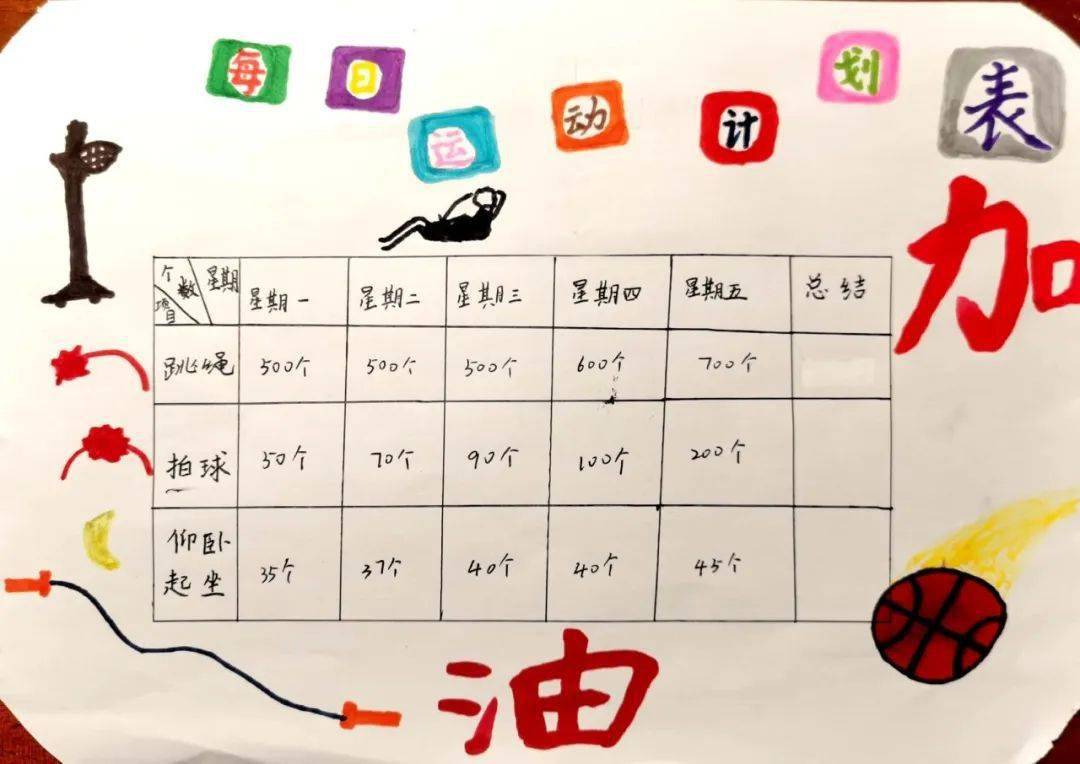 每日运动计划表
加
个数 星期 项目 星期一 星期二 星期三 星期四 星期五 总结
跳绳 500个 500个 500个 600个 700个
拍球 50个 70个 90个 100个 200个
仰卧起坐 35个 37个 40个 40个 45个
油